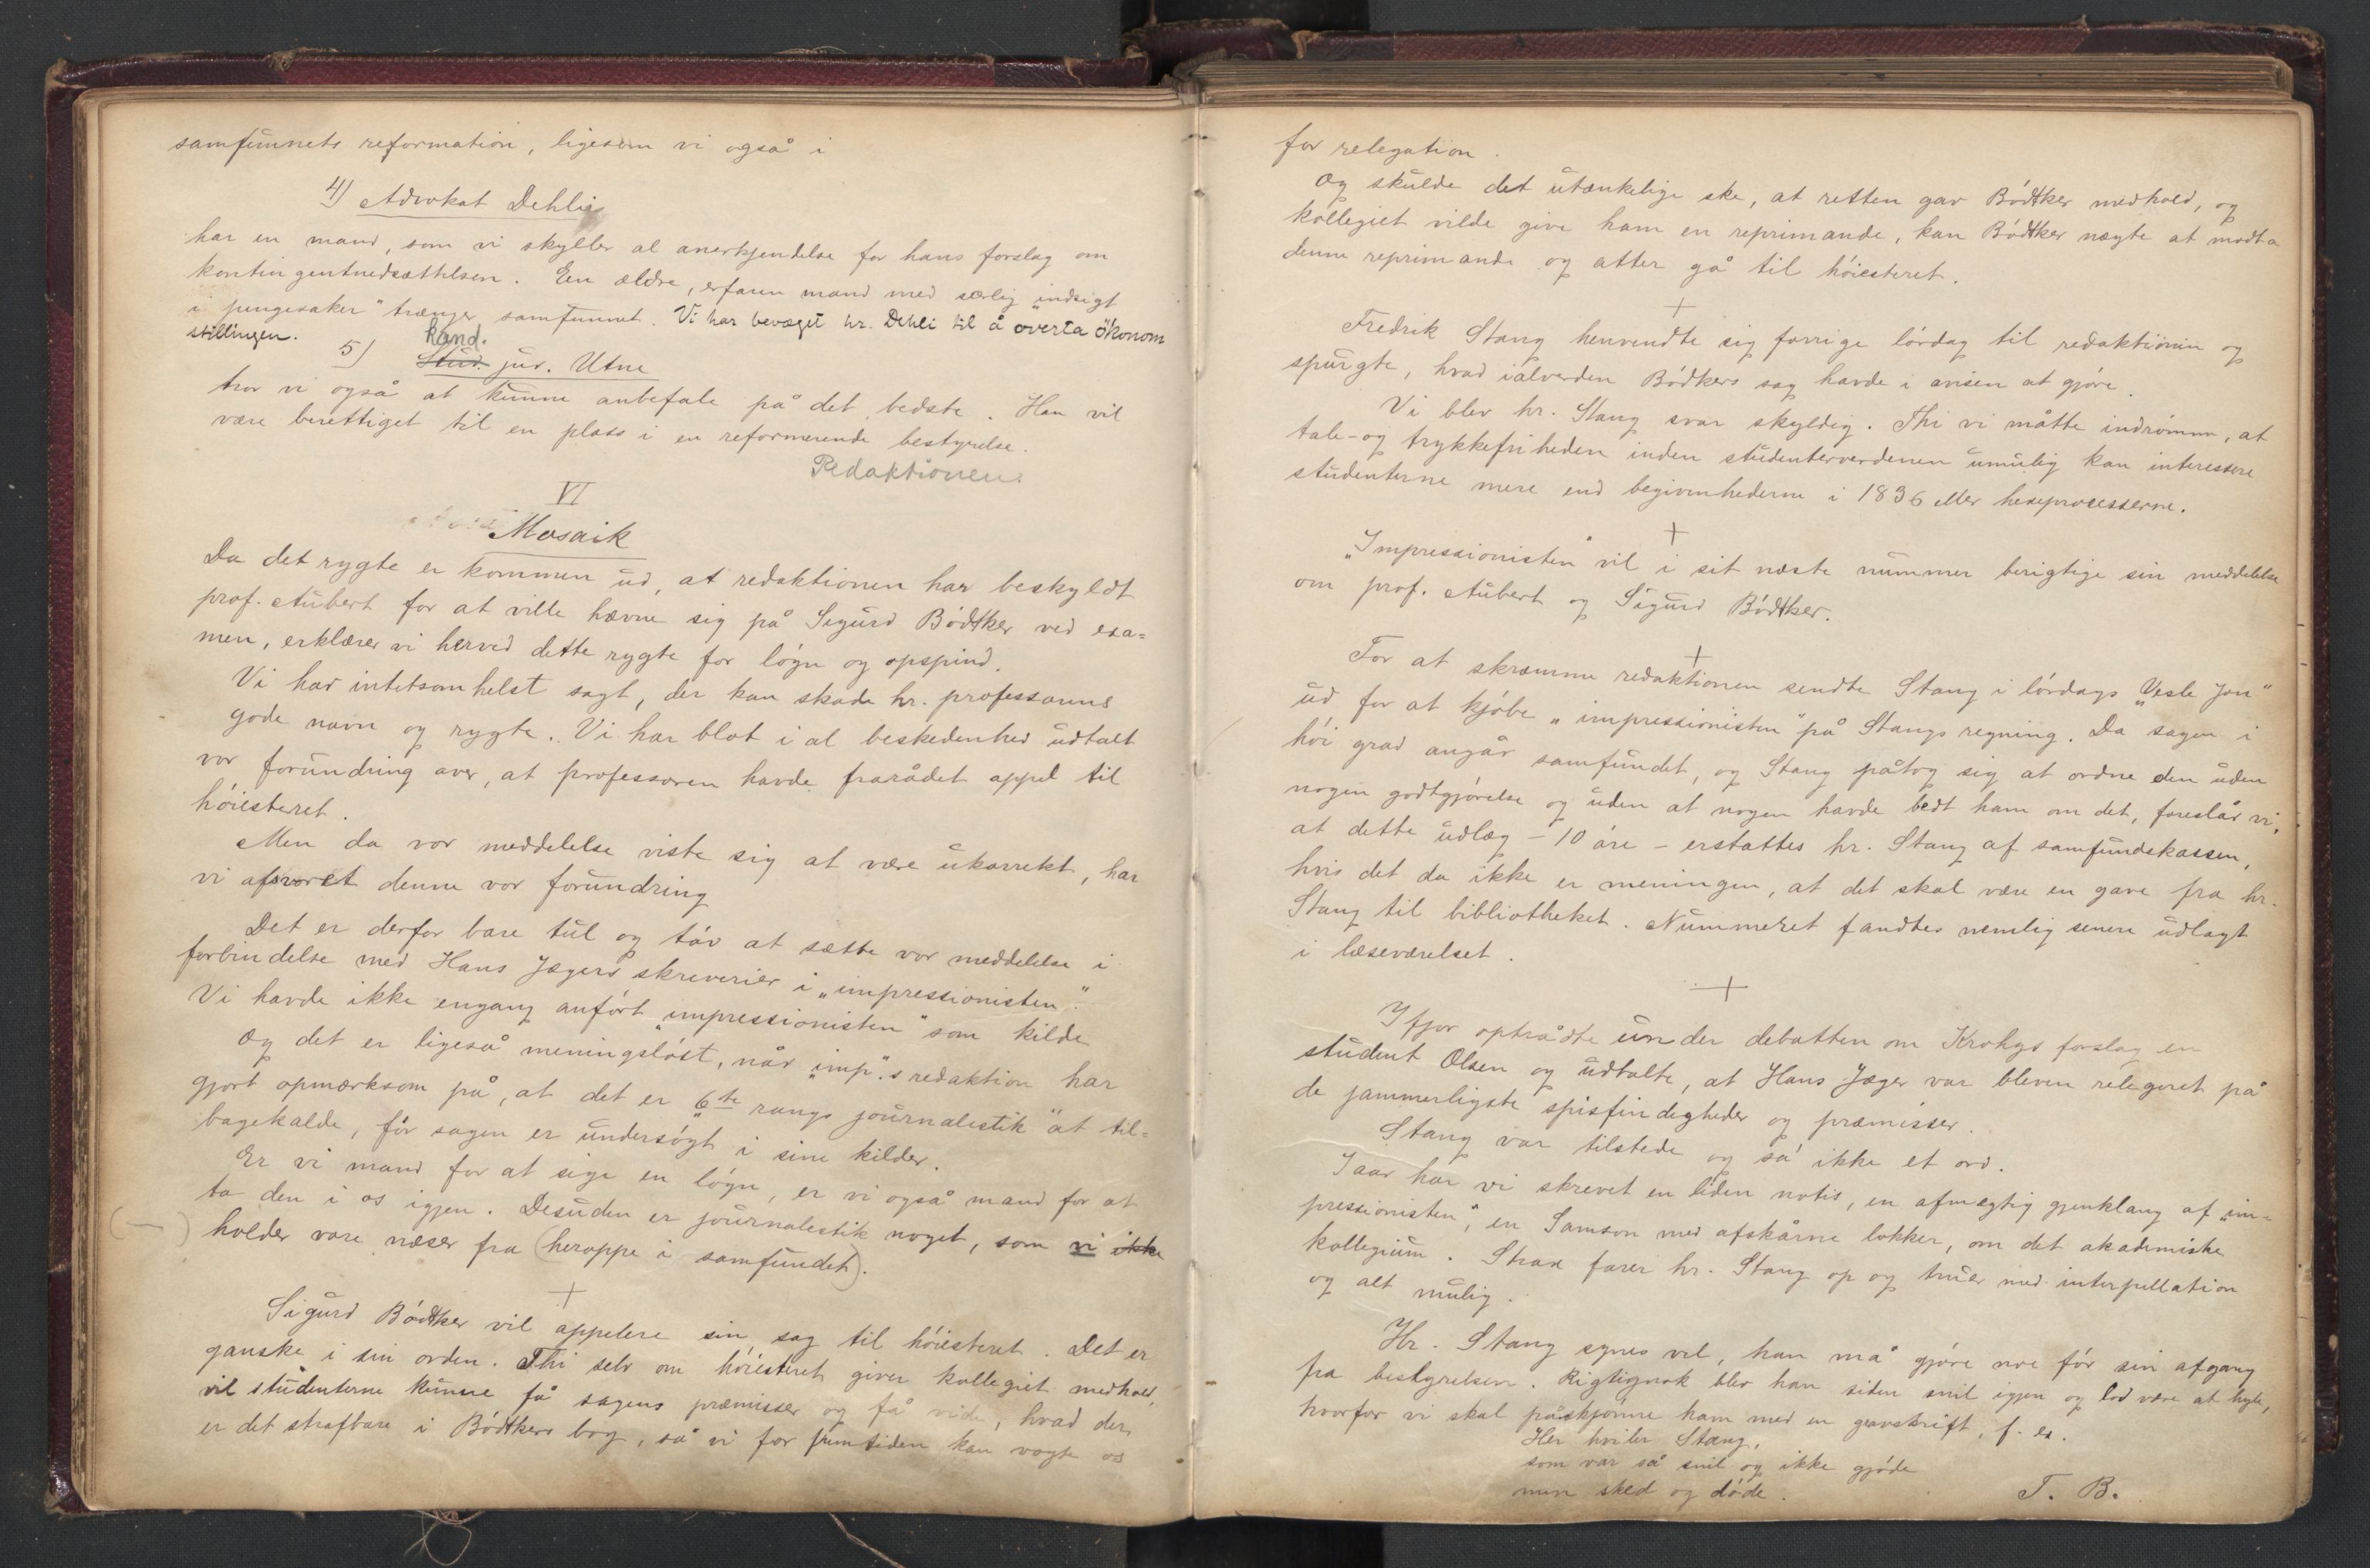 samfunnets reformation, ligesom vi også i
4) Advokat Dehli
har en mand, som vi skylder al anerkjendelse for hans forslag om
kontingentnedsættelsen. En ældre, erfaren mand med særlig „indsigt
i pengesaker" trænger samfunnet. Vi har bevæget hr. Dehli til å overta økonom
stillingen.
kand.
5) Stud. jur. Utne
tror vi også at kunne anbefale på det bedste. Han vil
være berettiget til en plass i en reformerende bestyrelse.
Redaktionen.
VI
Mosaik
Da det rygte er kommen ud, at redaktionen har beskyldt
prof. Aubert for at ville hævne sig på Sigurd Bødtker ved exa=
men, erklærer vi herved dette rygte for løgn og opspind.
Vi har intetsomhelst sagt, der kan skade hr. professorens
gode navn og rygte. Vi har blot i al beskedenhed udtalt
vor forundring over, at professoren havde frarådet appel til
høiesteret.
Men da vor meddelelse viste sig at være ukorrekt, har
vi afsvoret denne vor forundring
Det er derfor bare tul og tøv at sætte vor meddelelse i
forbindelse med Hans Jægers skreverier i „impressionisten".
Vi havde ikke engang anført „impressionisten" som kilde
Og det er ligeså meningsløst, når „imp."s redaktion har
gjort opmærksom på, at det er „6te rangs journalestik" at til=
bagekalde, før sagen er undersøgt i sine kilder.
Er vi mand for at sige en løgn, er vi også mand for at
ta den i os igjen. Desuden er journalestik noget, som vi ikke
holder vore næser fra (heroppe i samfundet).
+
Sigurd Bødtker vil appelere sin sag til høiesteret. Det er
ganske i sin orden. Thi selv om høiesteret giver kollegiet medhold,
vil studenterne kunne få sagens præmisser og få vide, hvad der
er det strafbare i Bødtkers bog, så vi for fremtiden kan vogte os
for relegation.
Og skulde det utænkelige ske, at retten gav Bødtker medhold, og
kollegiet vilde give ham en reprimande, kan Bødtker nægte at modta
denne reprimande og atter gå til høiesteret.
+
Fredrik Stang henvendte sig forrige lørdag til redaktionen og
spurgte, hvad ialverden Bødkers sag havde i avisen at gjøre.
Vi blev hr. Stang svar skyldig. Thi vi måtte indrømme, at
tale- og trykkefriheden inden studenterverdenen umulig kan interessere
studenterne mere end begivenhederne i 1836 eller hexeprocesserne.
+
„Impressionisten" vil i sit næste nummer berigtige sin meddelelse
om prof. Aubert og Sigurd Bødtker.
+
For at skræmme redaktionen sendte Stang i lørdags „Vesle Jon"
ud for at kjøbe „impressionisten" på Stangs regning. Da sagen i
høi grad angår samfundet, og Stang påtog sig at ordne den uden
nogen godtgjørelse og uden at nogen havde bedt ham om det, foreslår vi,
at dette udlæg – 10 øre – erstattes hr. Stang af samfundskassen,
hvis det da ikke er meningen, at det skal være en gave fra hr.
Stang til bibliotheket. Nummeret fandtes nemlig senere udlagt
i læseværelset.
+
Ifjor optrådte under debatten om Krohgs forslag en
student Olsen og udtalte, at Hans Jæger var bleven relegeret på
de jammerligste spisfindigheder og præmisser.
Stang var tilstede og sa' ikke et ord.
Iaar har vi skrevet en liden notis, en afmægtig gjenklang af „im=
pressionisten", en Samson med afskårne lokker, om det akademiske
kollegium. Strax farer hr. Stang op og truer med interpellation
og alt mulig.
Hr. Stang synes vel, han må gjøre noe før sin afgang
fra bestyrelsen. Rigtignok blev han siden snil igjen og lod være at hyle,
hvorfor vi skal påskjønne ham med en gravskrift, f. ex.
Her hviler Stang,
som var så snil og ikke gjøde
men sked og døde.
T. B.